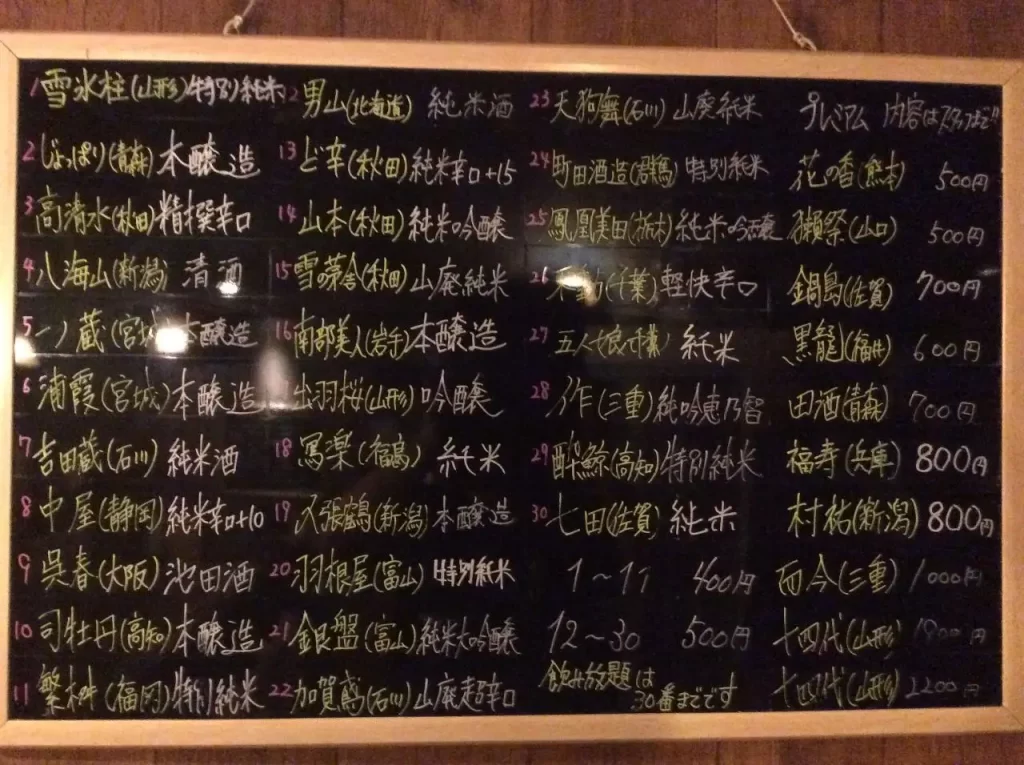 1 雪氷柱(山形)特別純米
2 じょっぱり(青森)本醸造
3 高清水(秋田)精撰辛口
4 八海山(新潟)清酒
5 一ノ蔵(宮城)本醸造
6 浦霞(宮城)本醸造
7 吉田蔵(石川)純米酒
8 中屋(静岡)純米辛口+10
9 呉春(大阪)池田酒
10 司牡丹(高知)本醸造
11 繁桝(福岡)特別純米
12 男山(北海道)純米酒
13 ど辛(秋田)純米辛口+15
14 山本(秋田)純米吟醸
15 雪の茅舎(秋田)山廃純米
16 南部美人(岩手)本醸造
出羽桜(山形)吟醸
18 写楽(福島)純米
19 〆張鶴(新潟)本醸造
20 羽根屋(富山)特別純米
21 銀盤(富山)純米大吟醸
22 加賀鳶(石川)山廃超辛口
23 天狗舞(石川)山廃純米
24 町田酒造(群馬)特別純米
25 鳳凰美田(栃木)純米吟醸
26 (千葉)軽快辛口
27 五人娘(千葉)純米
28 作(三重)純吟恵乃智
29 酔鯨(高知)特別純米
30 七田(佐賀)純米
1〜11 400円
12〜30 500円
飲み放題は
30番までです
プレミアム 内容はスタッフまで!!
花の香(熊本) 500円
獺祭(山口) 500円
鍋島(佐賀) 700円
黒龍(福井) 600円
田酒(青森) 700円
福寿(兵庫) 800円
村祐(新潟) 800円
而今(三重) 1000円
十四代(山形) 1900円
十四代(山形) 2200円